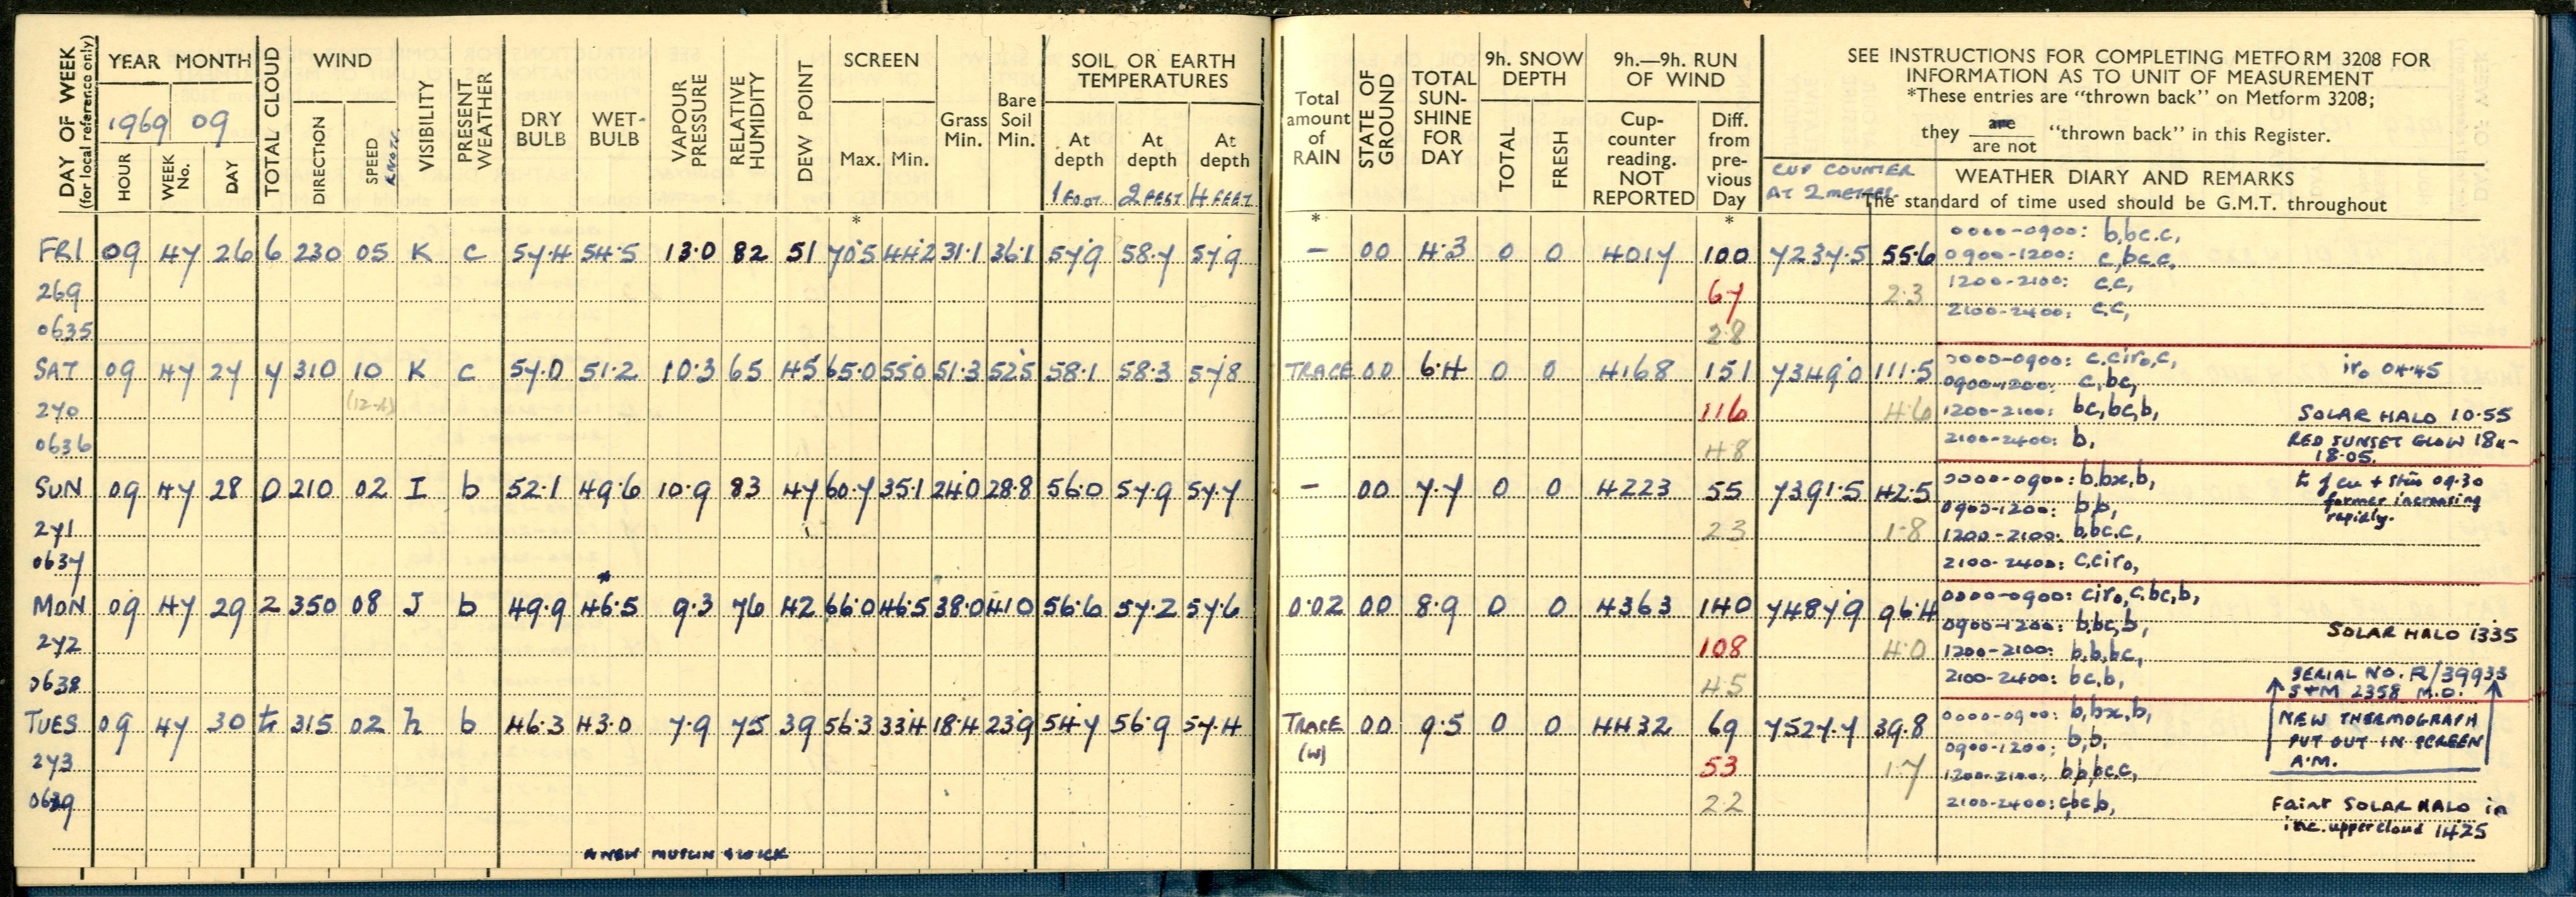 DAY OF WEEK
(for local reference only)
YEAR MONTH
1969 09
HOUR
WEEK No.
DAY
TOTAL CLOUD
WIND
DIRECTION
SPEED
KNOTS
VISIBILITY
PRESENT WEATHER
DRY BULB
WET-BULB
VAPOUR PRESSURE
RELATIVE HUMIDITY
DEW POINT
SCREEN
Max. Min.
Grass Min.
Bare Soil Min.
SOIL OR EARTH TEMPERATURES
At depth 1 FOOT
At depth 2 FEET
At depth 4 FEET
Total amount of RAIN
STATE OF GROUND
TOTAL SUN-SHINE FOR DAY
9h. SNOW DEPTH
TOTAL
FRESH
9h.—9h. RUN OF WIND
Cup-counter reading. NOT REPORTED
Diff. from pre-vious Day
SEE INSTRUCTIONS FOR COMPLETING METFORM 3208 FOR
INFORMATION AS TO UNIT OF MEASUREMENT
*These entries are "thrown back" on Metform 3208;
they are / are not "thrown back" in this Register.
CUP COUNTER
AT 2 METRES.
WEATHER DIARY AND REMARKS
The standard of time used should be G.M.T. throughout
* * *
FRI 09 47 26 6 230 05 K c 57.4 54.5 13.0 82 51 70.5 44.2 31.1 36.1 57.9 58.7 57.9 — 00 4.3 0 0 4017 100 7237.5 55.6
0000-0900: b,bc.c,
0900-1200: c,bc.c,
269 67 2.3 1200-2100: c.c,
0635 2.8 2100-2400: c.c,
SAT 09 47 27 7 310 10 K c 57.0 51.2 10.3 65 45 65.0 55.0 51.3 52.5 58.1 58.3 57.8 TRACE 00 6.4 0 0 4168 151 7349.0 111.5
0000-0900: c.ciro,c, iro 04.45
(12-h)
0900-1200: c,bc,
270 116 4.6 1200-2100: bc,bc,b, SOLAR HALO 10.55
0636 4.8 2100-2400: b, RED SUNSET GLOW
18.05.
SUN 09 47 28 0 210 02 I b 52.1 49.6 10.9 83 47 60.7 35.1 24.0 28.8 56.0 57.9 57.7 — 00 7.7 0 0 4223 55 7391.5 42.5
0000-0900: b.bx,b, cu + 09.30
former increasing
rapidly.
0900-1200: b,b,
271 23 1.8 1200-2100: b,bc.c,
0637 2100-2400: c,ciro,
*
MON 09 47 29 2 350 08 J b 49.9 46.5 9.3 76 42 66.0 46.5 38.0 41.0 56.6 57.2 57.6 0.02 00 8.9 0 0 4363 140 7487.9 96.4
0000-0900: ciro,c,bc,b,
0900-1200: b,bc,b, SOLAR HALO 1335
272 108 4.0 1200-2100: b,b,bc,
0638 45 2100-2400: bc,b, SERIAL NO. R/39933
S+M 2358 M.O.
TUES 09 47 30 315 02 h b 46.3 43.0 7.9 75 39 56.3 33.4 18.4 23.9 54.7 56.9 57.4 TRACE (W) 00 9.5 0 0 4432 69 7527.7 39.8
0000-0900: b,bx,b, NEW THERMOGRAPH
PUT OUT IN SCREEN
A.M.
0900-1200: b,b,
273 53 1.7 1200-2100: b,b,bc.c,
0639 2.2 2100-2400: c,bc,b, Faint SOLAR HALO in
inc. upper cloud 1425
NEW MUSLIN & WICK